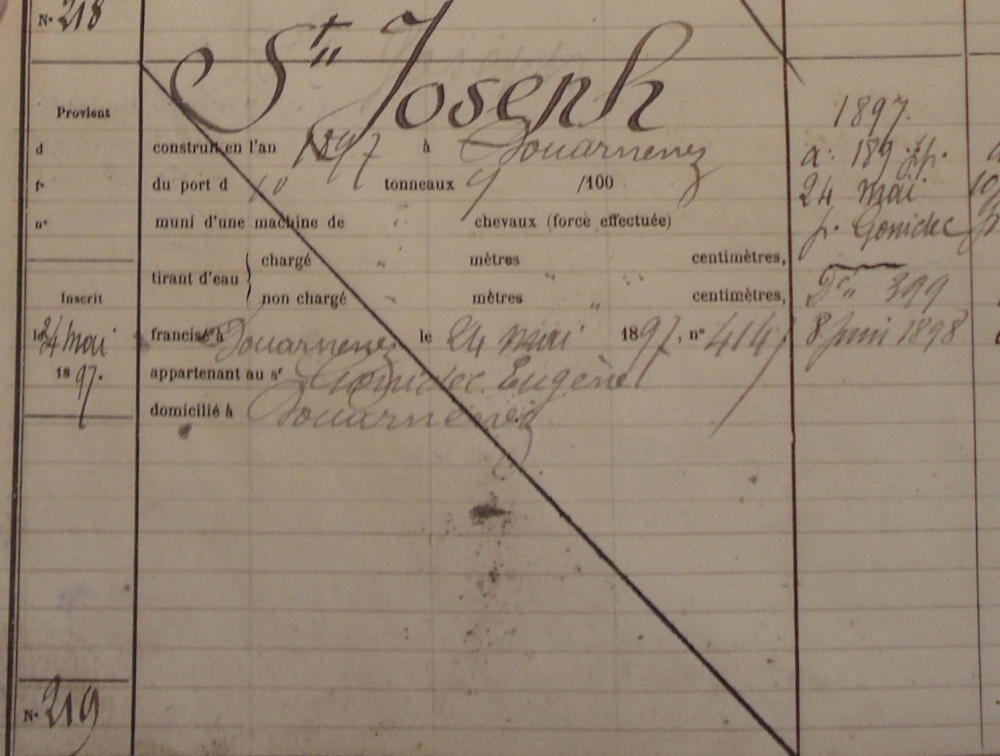 N° 218
St Joseph
Provient
d
f°
n°
construit en l'an 1897 à Douarnenez
du port d tonneaux 9 /100
muni d'une machine de " chevaux (force effectuée)
tirant d'eau { chargé " mètres " centimètres,
non chargé " mètres " centimètres,
Inscrit
le 24 mai
1897.
francisé à Douarnenez le 24 mai 1897, n° 414
appartenant au sr Gonidec Eugène
domicilié à Douarnenez
1897.
a: 189
24 mai
p. Gonidec
399
8 juin 1898
N° 219